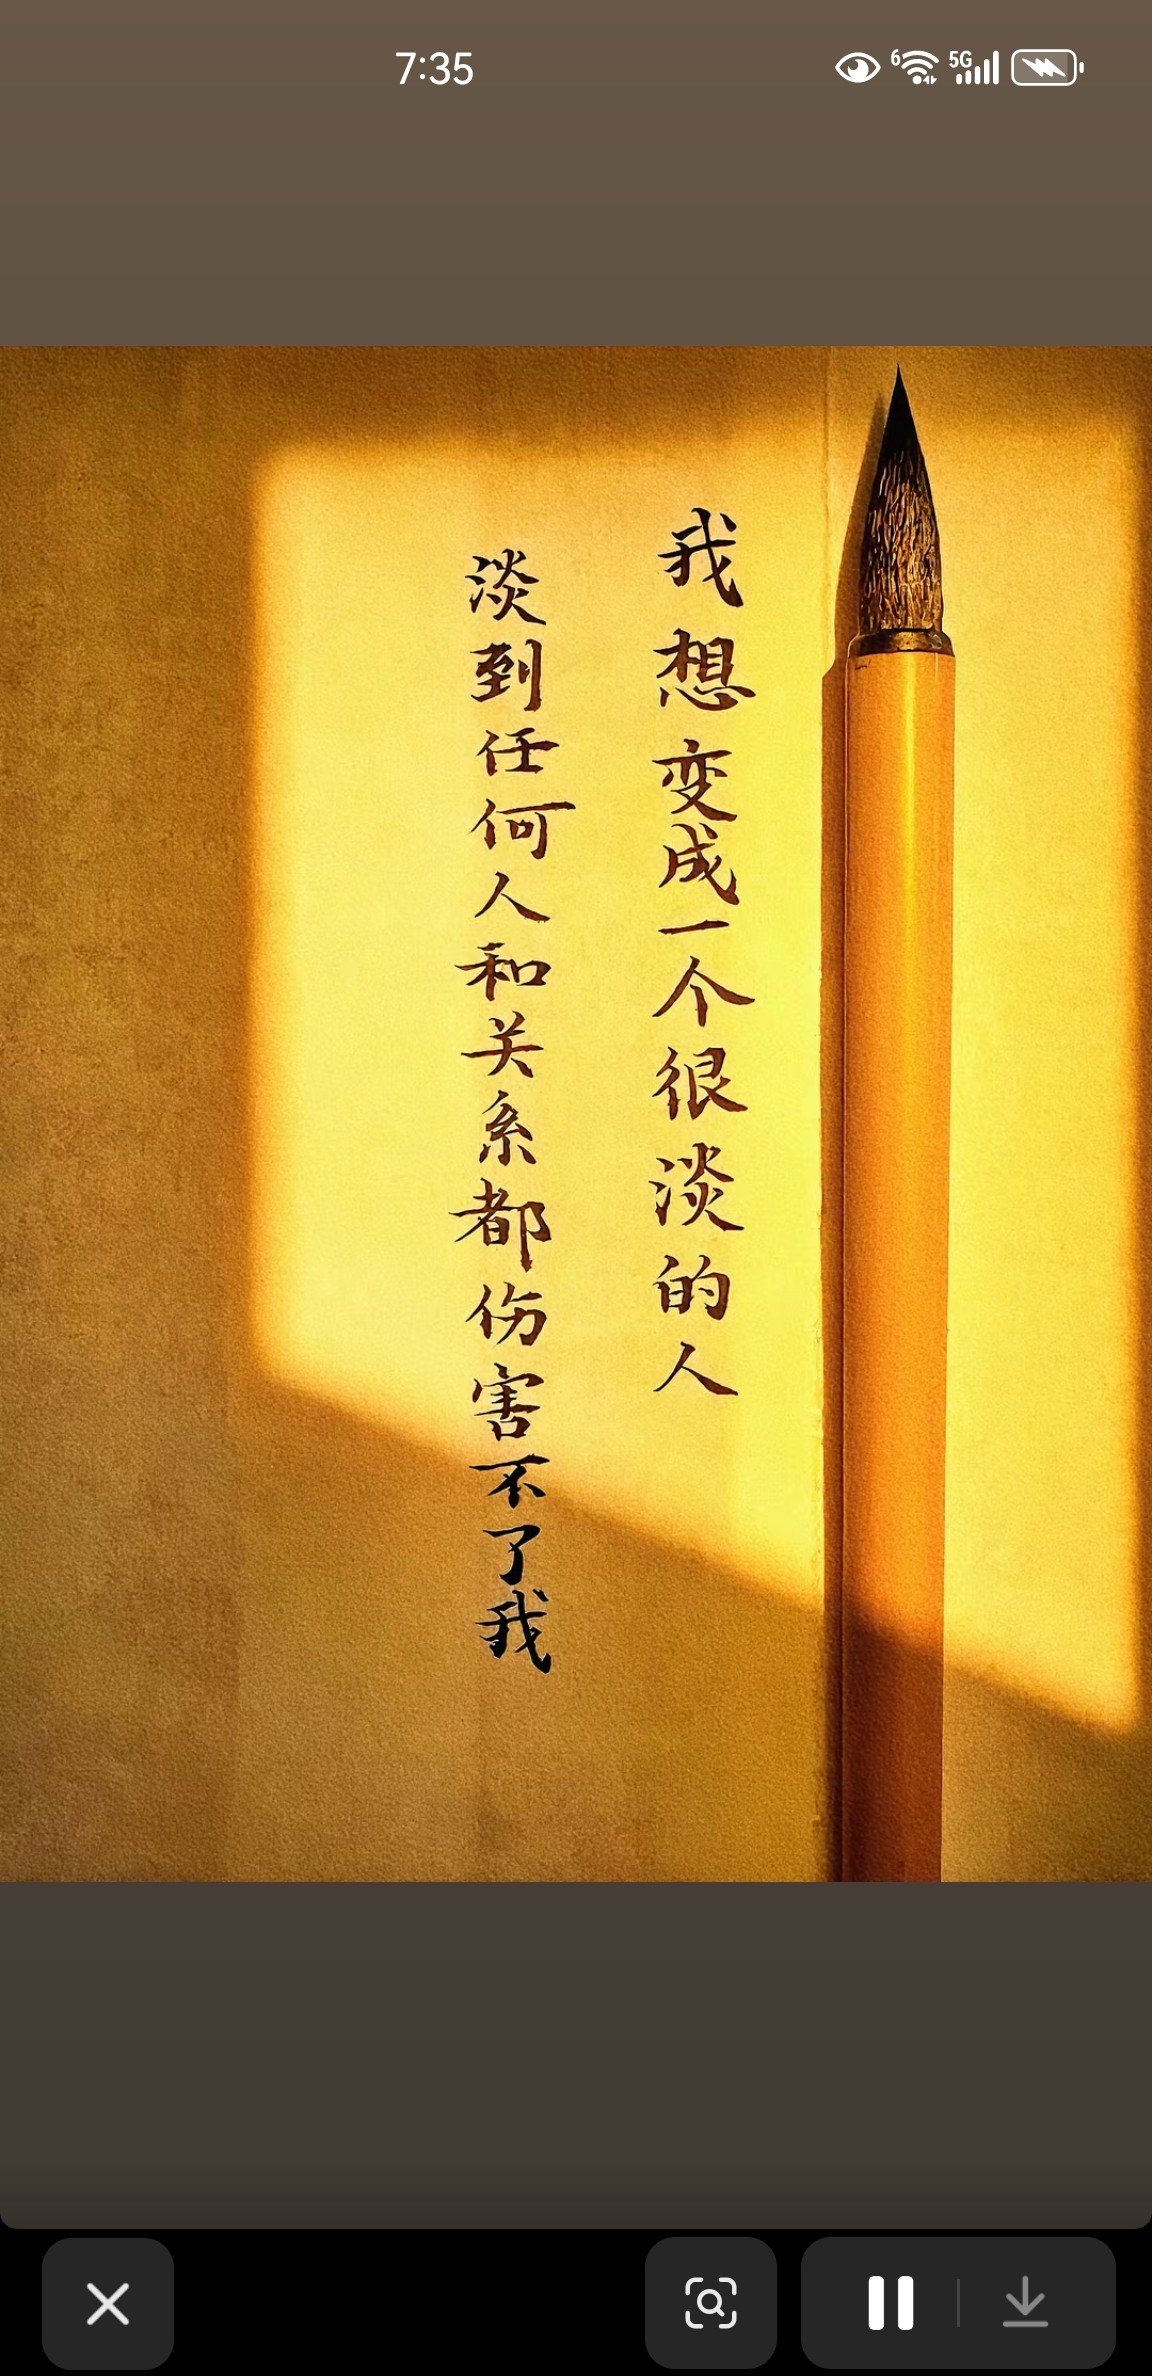 7:35
6
5G
我想变成一个很淡的人
淡到任何人和关系都伤害不了我